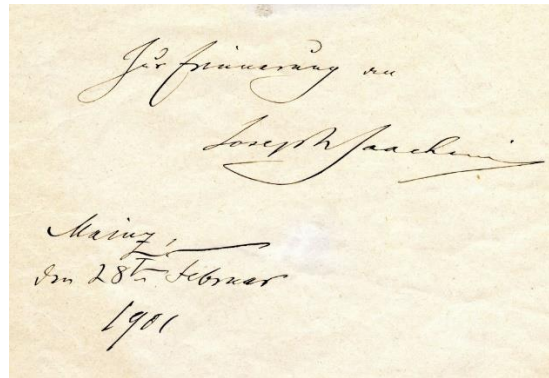 Zur Erinnerung an
Joseph Joachim
Mainz,
den 28ten Februar
1901